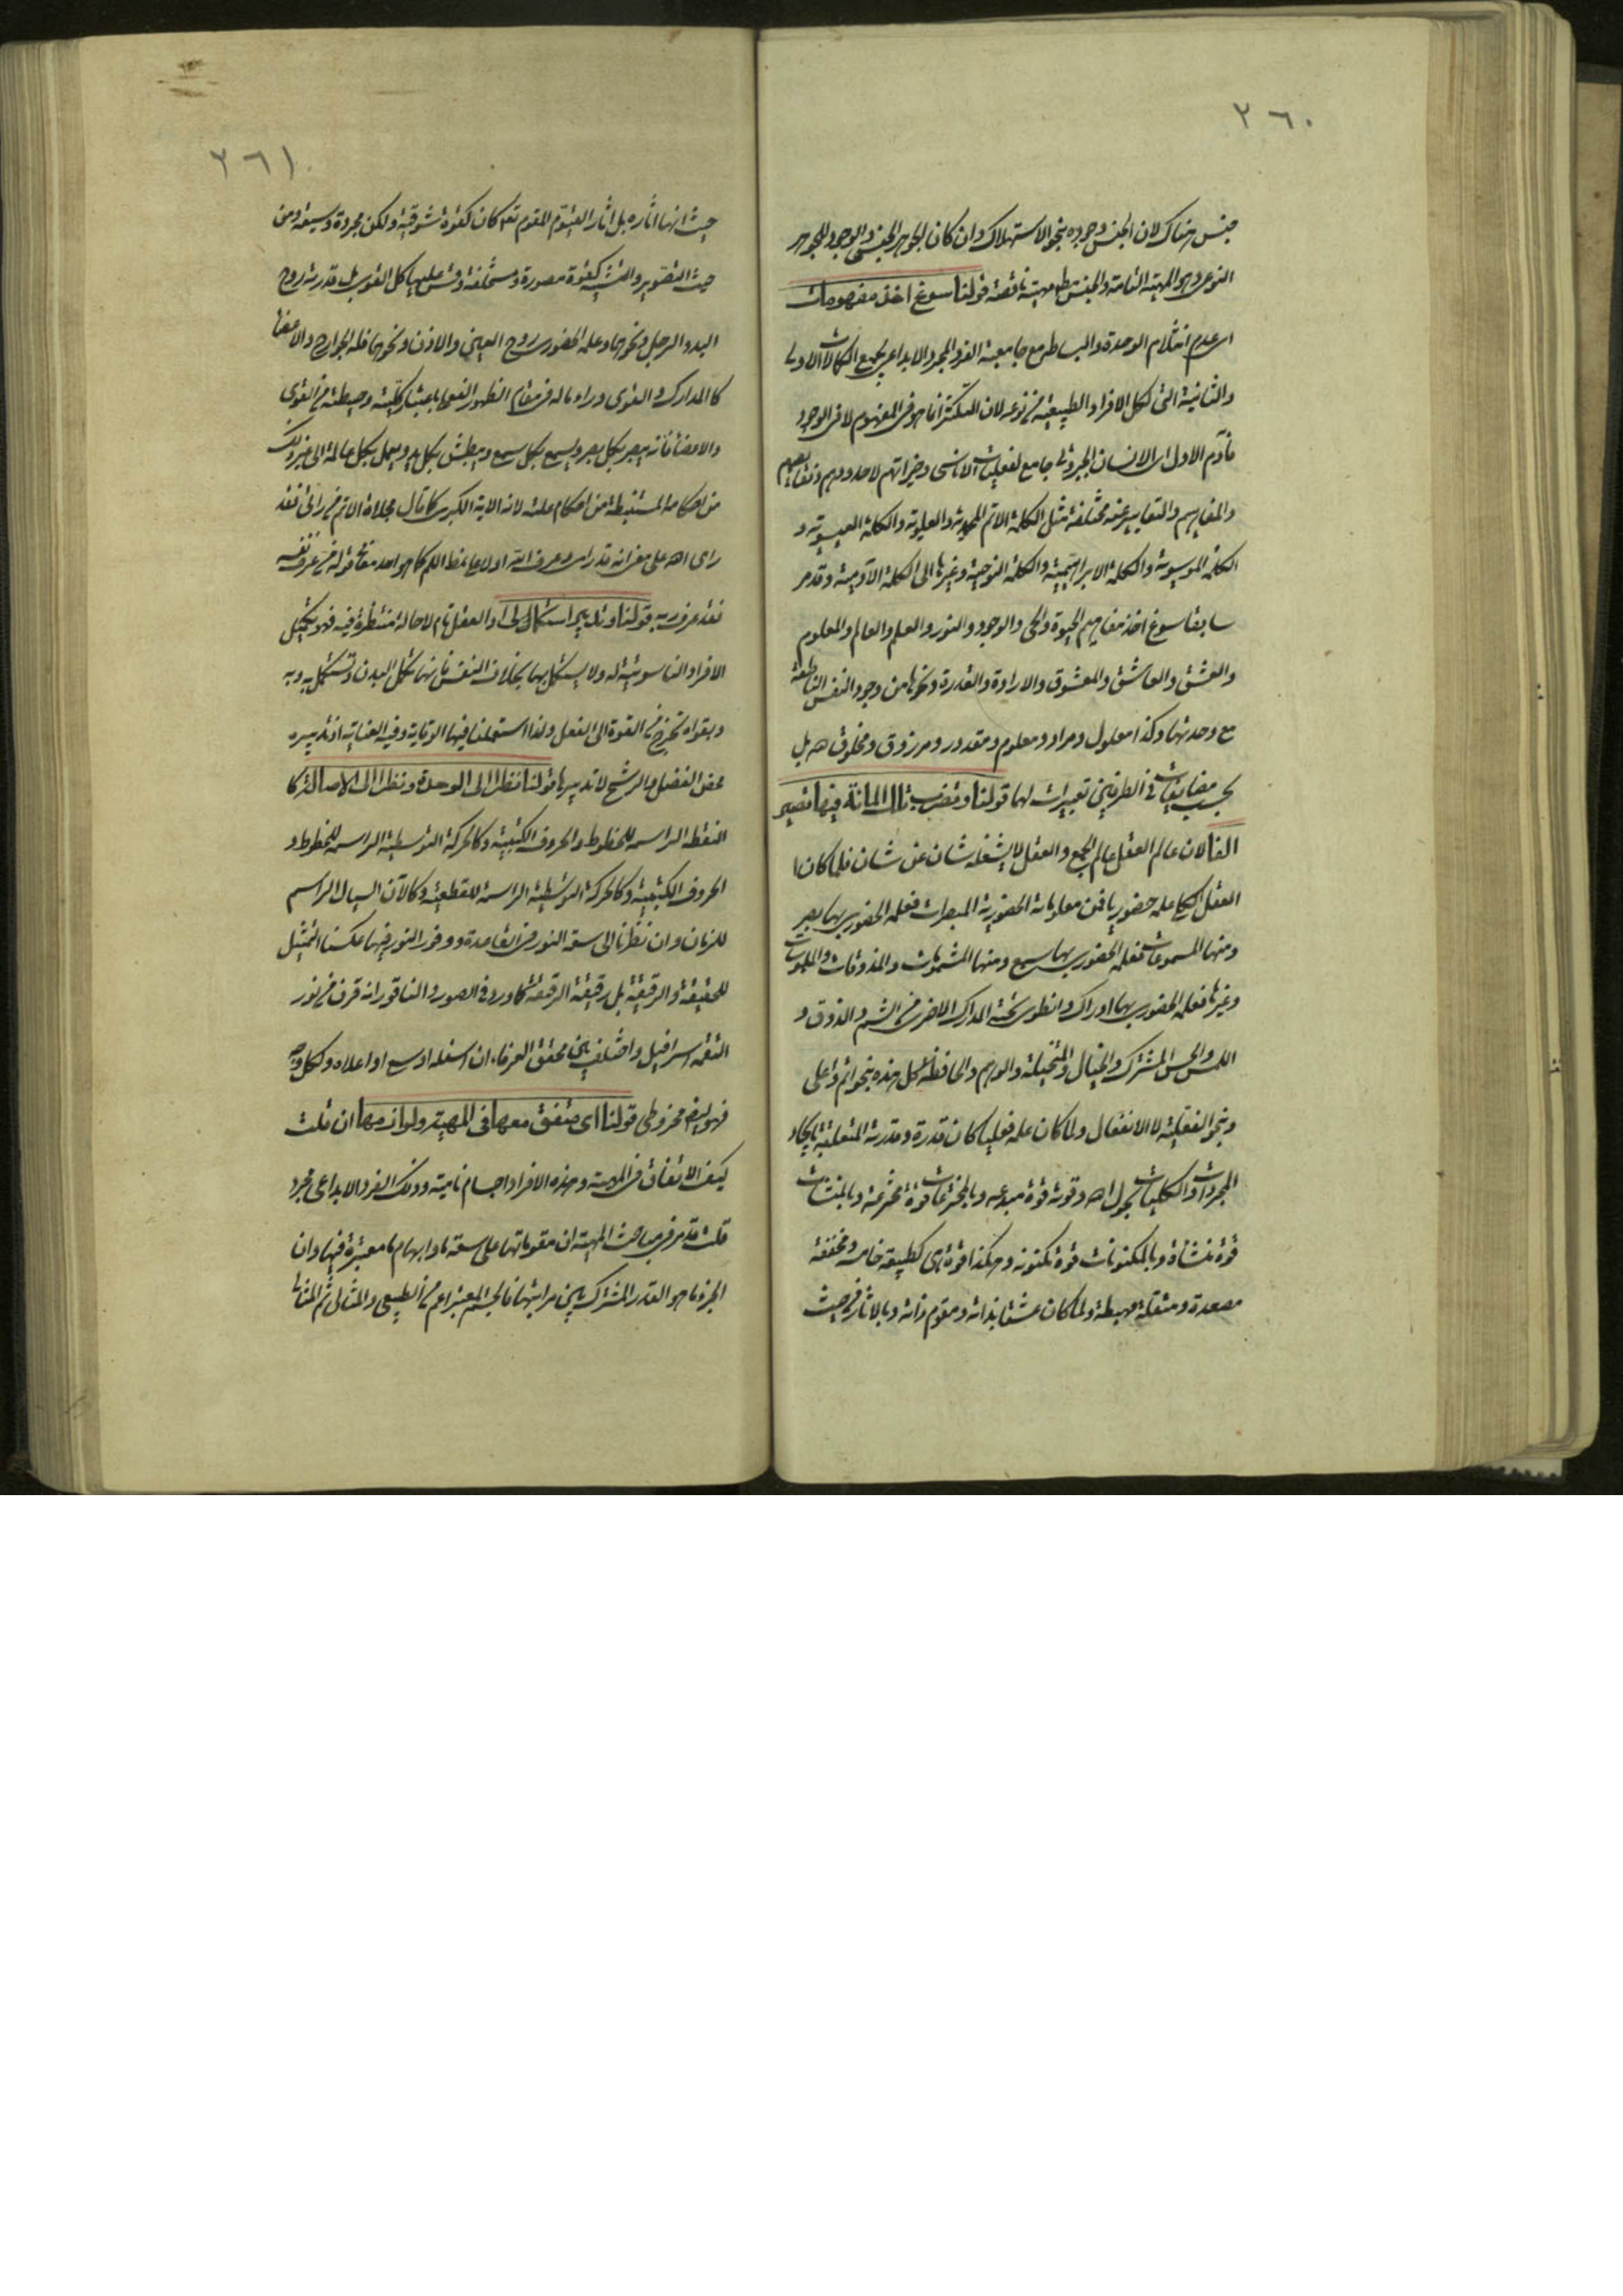 ٢٦٠
جنس هناك لان الجنس وجوده بنحو الاستهلاك وان كان الجوهر الجنسى والوجود للجوهر
النوعى وهو المهية التامة والجنس مهية ناقصة قولنا سوغ اخذ مفهومات
اى عدم انثلام الوحدة والبساطة مع جامعية الفرد المجرد الابداعى لجميع الكمالات الاولى
والثانية التى لكل الافراد الطبيعية من نوعه لان التكثر انما هو فى المفهوم لا فى الوجود
فآدم الاول اى الانسان الجبروتى جامع لفعليات الاناسى وخيراتهم لا حدودهم ونقايصهم
والمفاهيم والتعابير عنه مختلفة مثل الكلمة الاتم المحمدية والعلوية والكلمة العيسوية و
الكلمة الموسوية والكلمة الابراهيمية والكلمة النوحية وغيرها الى الكلمة الآدمية وقد مر
سابقا سوغ اخذ مفاهيم الحيوة والحى والوجود والنور والعلم والعالم والمعلوم
والعشق والعاشق والمعشوق والارادة والقدرة ونحوها من وجود النفس الناطقة
مع وحدتها وكذا معلول ومراد ومعلوم ومقدور ومرزوق ومخلوق لله بل
بحسب مضايفات فى الطرفين تعبيرات لها قولنا وتضرب تلك المائة فيها تصير
الفا لان عالم العقل عالم الجمع والعقل لا يشغله شان عن شان فلما كان
العقل الكلى علمه حضوريا فمن معلوماته الحضورية المبصرات فعلمه الحضورى بها بصر
ومنها المسموعات فعلمه الحضورى بها سمع ومنها المشمومات والمذوقات والملموسات
وغيرها فعلمه الحضورى بها ادراك وانطوى تحته المدارك الاخرى من الشم والذوق و
اللمس والحس المشترك والخيال والمتخيلة والوهم والحافظة كل هذه بنحو اتم واعلى
وبنحو الفعلية لا الانفعال ولما كان علمه فعليا كان قدرة وقدرته المتعلقة بايجاد
المجردات والكليات بحول الله وقوته قوة مبدعة وبالمخترعات قوة مخترعة وبالمنشات
قوة منشاة وبالمكنونات قوة مكنونه وهكذا قوة هى كطبيعة خامسة ومخففة
مصعدة ومثقلة مهبطة ولما كان عشقا بذاته ومقوم ذاته وبالاثار من حيث
٢٦١
حيث انها اثاره بل اثار القيوم المقوم تعو كان كقوة شوقية ولكن مجردة وسيعة ومن
حيث التصوير والتشبيه كقوة مصورة ومتخيلة وقس عليها كل القوى بل قدرته روح
اليد والرجل ونحوهما وعلمه الحضورى روح العين والاذن ونحوهما فله الجوارح والاعضا
كما المدارك والقوى وراء ما له فى مقام الظهور الفعلى باعتبار كليته وحيطته من القوى
والاعضا فانه يبصر بكل بصر ويسمع بكل سمع ويبطش بكل يد ويعمل بكل عاملة الى غير ذلك
من احكامه المستنبطة من احكام علته لانه الاية الكبرى كما قال مجلاه الاتم من رانى فقد
راى الله على معنى انه قد راى وعرف الله اولا على نمط اللم كما هو احد معانى قوله من عرف نفسه
فقد عرف ربه قولنا وتدبير استكمالى اذ العقل تام لا حالة منتظرة فيه فهو يكمل
الافراد الناسوتية له ولا يستكمل بها بخلاف النفس فانها تكمل البدن وتستكمل به وبه
وبقواه تخرج من القوة الى الفعل ولذا استعملنا فيها الوقاية وفيه العناية اذ تدبيره
محض الفضل والرشح لا تدبيرها قولنا نظرا الى الوحدة ونظرا الى الاصالة كما
النقطة الراسمة للخطوط والحروف الكتبية وكالحركة التوسطية الراسمة للخطوط و
الحروف الكتبية وكالحركة التوسطية الراسمة للقطعية وكالآن السيال الراسم
للزمان وان نظرنا الى سعة النور فى القاعدة ووفور النور فيها عكسنا التمثيل
للحقيقة والرقيقة بل رقيقة الرقيقة كما ورد فى الصور والناقور انه قرن من نور
التقمه اسرافيل واختلف بين محققى العرفاء ان اسفله اوسع او اعلاه ولكل وجه
فهو ايضا مخروطى قولنا اى متفق معها فى المهية ولوازمها ان قلت
كيف الاتفاق فى المهية وهذه الافراد اجسام نامية وذلك الفرد الابداعى مجرد
قلت قد مر فى مباحث المهية ان مقوماتها على سعة ما وابهام ما معتبرة فيها وان
الجزء ما هو القدر المشترك بين مراتبها فالجسم المعتبر اعم من الطبيعى والمثالى ثم المثالى